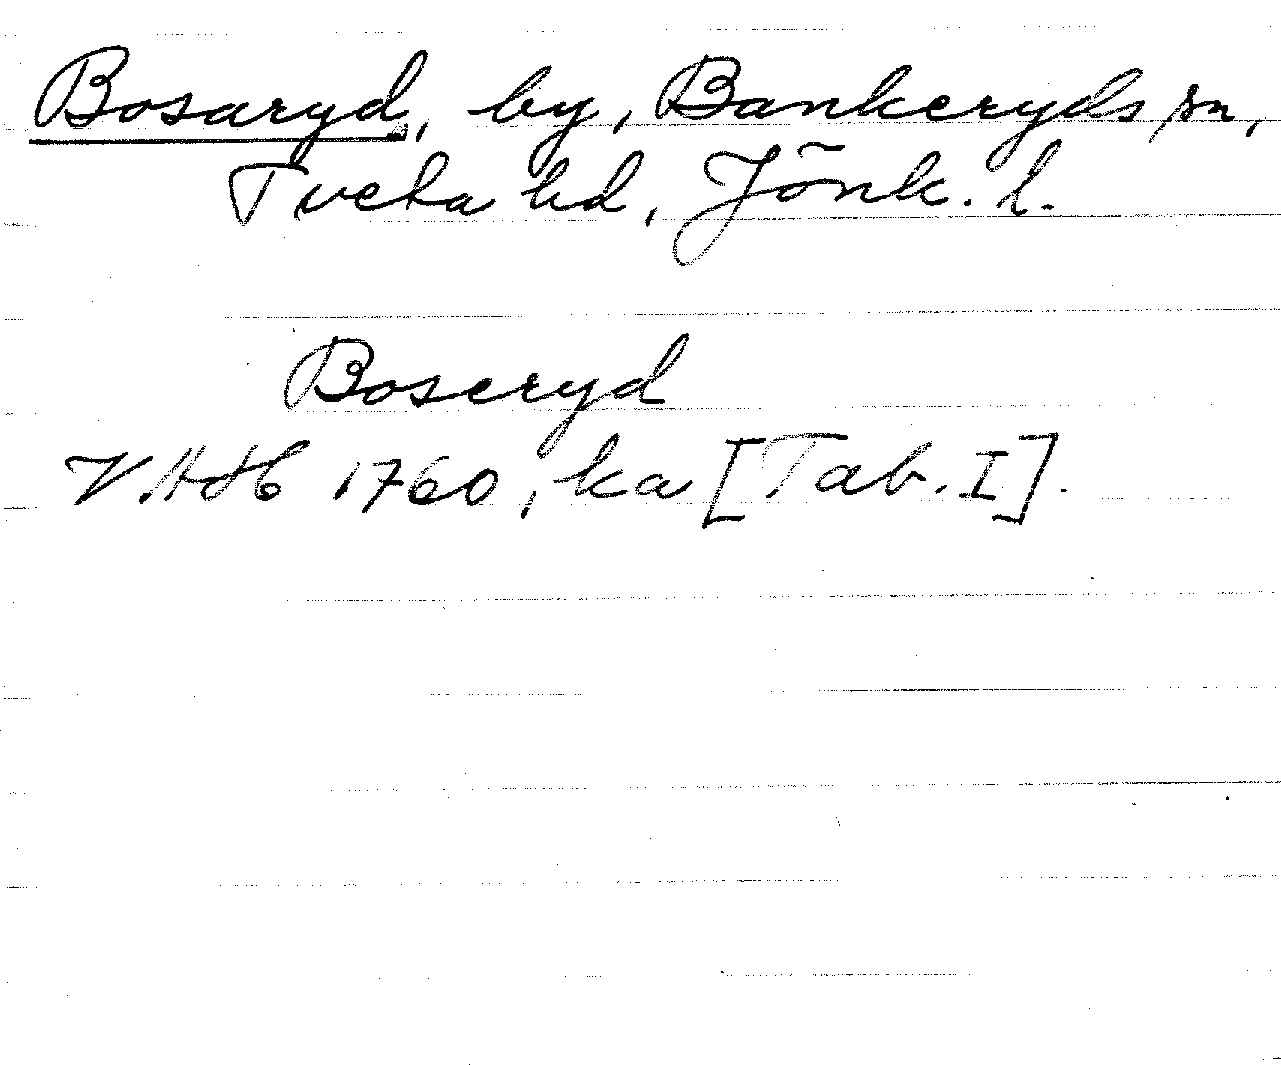 Bosaryd, by, Bankeryds sn,
Tveta hd, Jönk. l.
Boseryd
VAH 1760, ka [Tab. I].